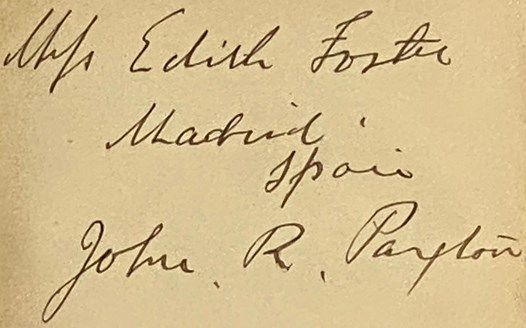 Miss Edith Foster
Madrid.
Spain
John. R. Paxton